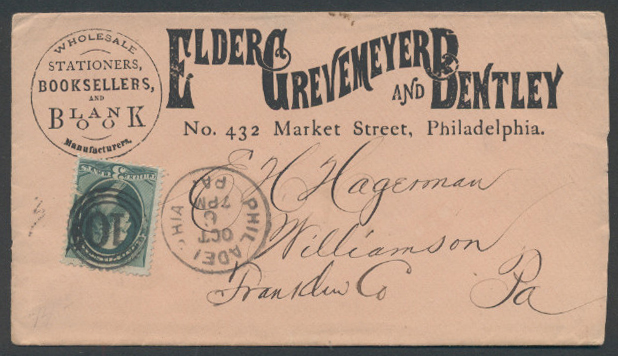 WHOLESALE
STATIONERS,
BOOKSELLERS,
AND
BLANK BOOK
Manufacturers.
ELDER GREVEMEYER AND BENTLEY
No. 432 Market Street, Philadelphia.
PHILADEL HIA
PA
7 PM
OCT
10
E H Hagerman
Williamson
Franklin Co Pa